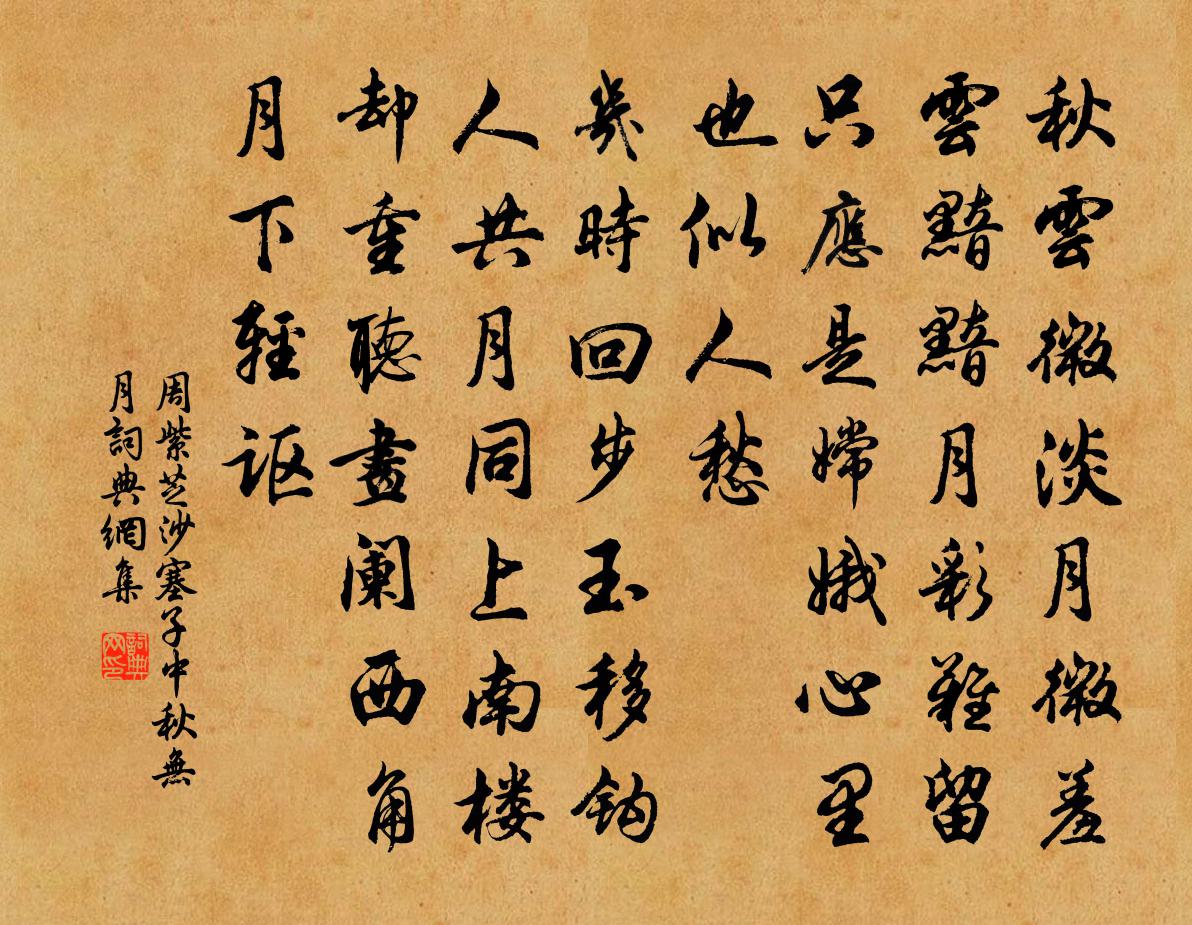 秋雲微淡月微羞
雲黯黯月彩難留
只應是嫦娥心里
也似人愁
幾時回步玉移鈎
人共月同上南楼
却重聽畫阑西角
月下輕讴
周紫芝沙塞子中秋無
月詞典網集
詞典
网印